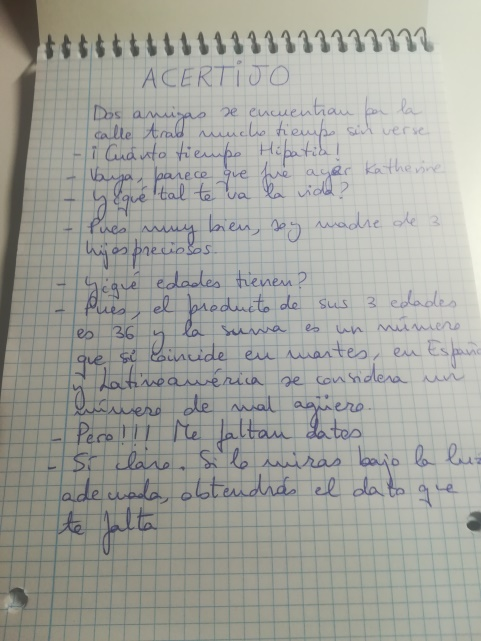 ACERTIJO
Dos amigas se encuentran por la
calle tras mucho tiempo sin verse
- ¡Cuánto tiempo Hipatia!
- Vaya, parece que fue ayer Katherine
- Y ¿qué tal te va la vida?
- Pues muy bien, soy madre de 3
hijos preciosos.
- Y ¿qué edades tienen?
- Pues, el producto de sus 3 edades
es 36 y la suma es un número
que si coincide en martes, en España
y Latinoamérica se considera un
número de mal agüero.
- Pero!!! Me faltan datos
- Sí claro. Si lo miras bajo la luz
adecuada, obtendrás el dato que
te falta